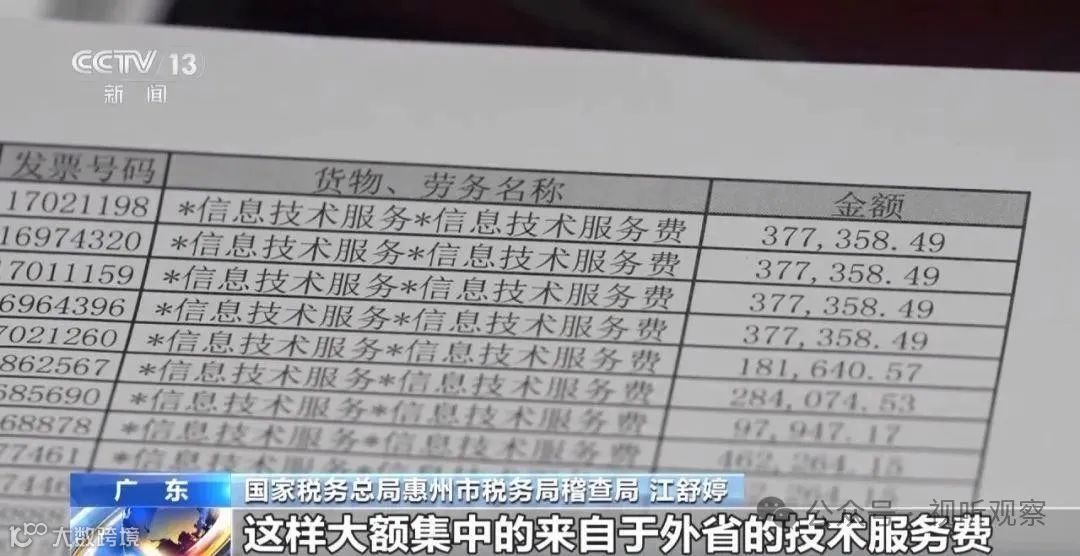 CCTV 13
新闻
发票号码 货物、劳务名称 金额
17021198 *信息技术服务*信息技术服务费 377,358.49
16974320 *信息技术服务*信息技术服务费 377,358.49
17011159 *信息技术服务*信息技术服务费 377,358.49
6964396 *信息技术服务*信息技术服务费 377,358.49
7021260 *信息技术服务*信息技术服务费 181,640.57
862567 *信息技术服务*信息技术服务费 284,074.53
685690 *信息技术服务*信息技术服务费 97,947.17
68878 *信息技术服务*信息技术服务费 462,264.15
77461
广东 国家税务总局惠州市税务局稽查局 江舒婷
这样大额集中的来自于外省的技术服务费
公众号 · 视听观察
大数跨境